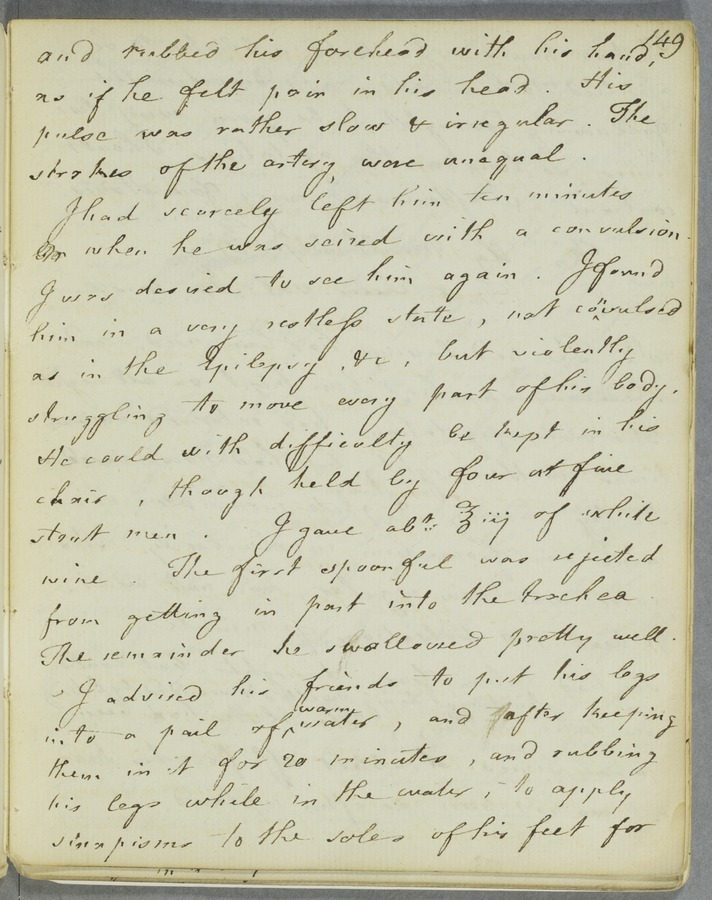 149
and rubbed his forehead with his hand,
as if he felt pain in his head. His
pulse was rather slow & irregular. The
strokes of the artery were unequal.
I had scarcely left him ten minutes
when he was seized with a convulsion.
I was desired to see him again. I found
him in a very restless state, not convulsed
as in the Epilepsy &c, but violently
struggling to move every part of his body.
He could with difficulty be kept in his
chair, though held by four or five
stout men. I gave abt. ℥iij of white
wine. The first spoonful was rejected
from getting in part into the trachea.
The remainder he swallowed pretty well.
I advised his friends to put his legs
into a pail of warm water, and after keeping
them in it for 20 minutes, and rubbing
his legs while in the water, to apply
sinapisms to the soles of his feet for